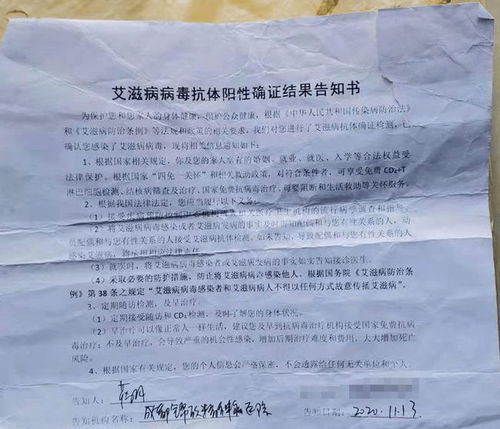 艾滋病病毒抗体阳性确证结果告知书
为保护您和您家人的身体健康，维护公众健康，根据《中华人民共和国传染病防治法》
和《艾滋病防治条例》等法规和政策的相关要求，我们对您进行了艾滋病抗体确证检测，已
确认您感染了艾滋病病毒，现将相关信息通知如下：
1、根据国家相关规定，你及您的家人享有的婚姻、就业、就医、入学等合法权益受
法律保护。根据国家“四免一关怀”和相关救助政策，对符合条件者，可享受免费 CD₄+T
淋巴细胞检测、结核病筛查及治疗、国家免费抗病毒治疗、母婴阻断和生活救助等关怀服务。
2、根据我国法律法定，您应当履行以下义务：
（1）接受疾病预防控制
的流行病学调查和指导。
（2）将艾滋病病毒感染或者艾滋病发病的事实及时告知配偶和与您有性关系的人，动
员配偶和与您有性关系的人接受艾滋病抗体检测。如未告知，导致配偶和与您有性关系的人
感染艾滋病，将
法律责任。
（3）就医时，将艾滋病病毒感染者或艾滋病发病的事实如实告知接诊医生。
（4）采取必要的防护措施，防止将艾滋病病毒感染他人。根据国务院《艾滋病防治条
例》第 38 条之规定“艾滋病病毒感染者和艾滋病病人不得以任何方式故意传播艾滋病”。
3、定期随访检测，及早治疗。
（1）定期接受随访和 CD₄检测，及时了解您的身体状况。
（2）早治疗可以像正常人一样生活，建议您及早到抗病毒治疗机构接受国家免费抗病
毒治疗；不及早治疗，会导致严重的机会性感染，增加后期治疗难度和费用，大大增加死亡
风险。
4、根据国家有关规定，您的个人信息会严格保密，不会透露给任何无关单位和个人。
告知人：
告知机构名称：成都锦欣
医院
告知日期：2020.11.13